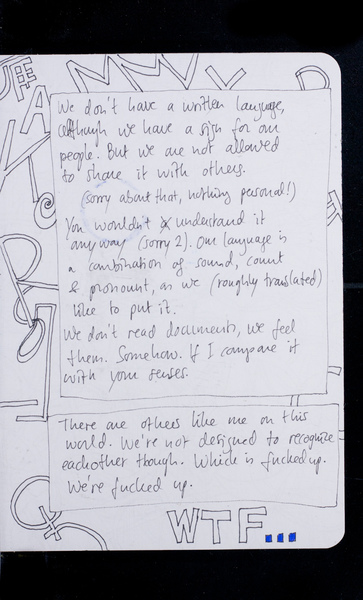 We don't have a written language,
although we have a sign for our
people. But we are not allowed
to share it with others.
(sorry about that, nothing personal!)
You wouldn't understand it
anyway (sorry 2). Our language is
a combination of sound, count
& pronount, as we (roughly translated)
like to put it.
We don't read documents, we feel
them. Somehow. If I compare it
with your senses.
There are others like me on this
world. We're not designed to recognize
eachother though. Which is fucked up.
We're fucked up.
WTF...